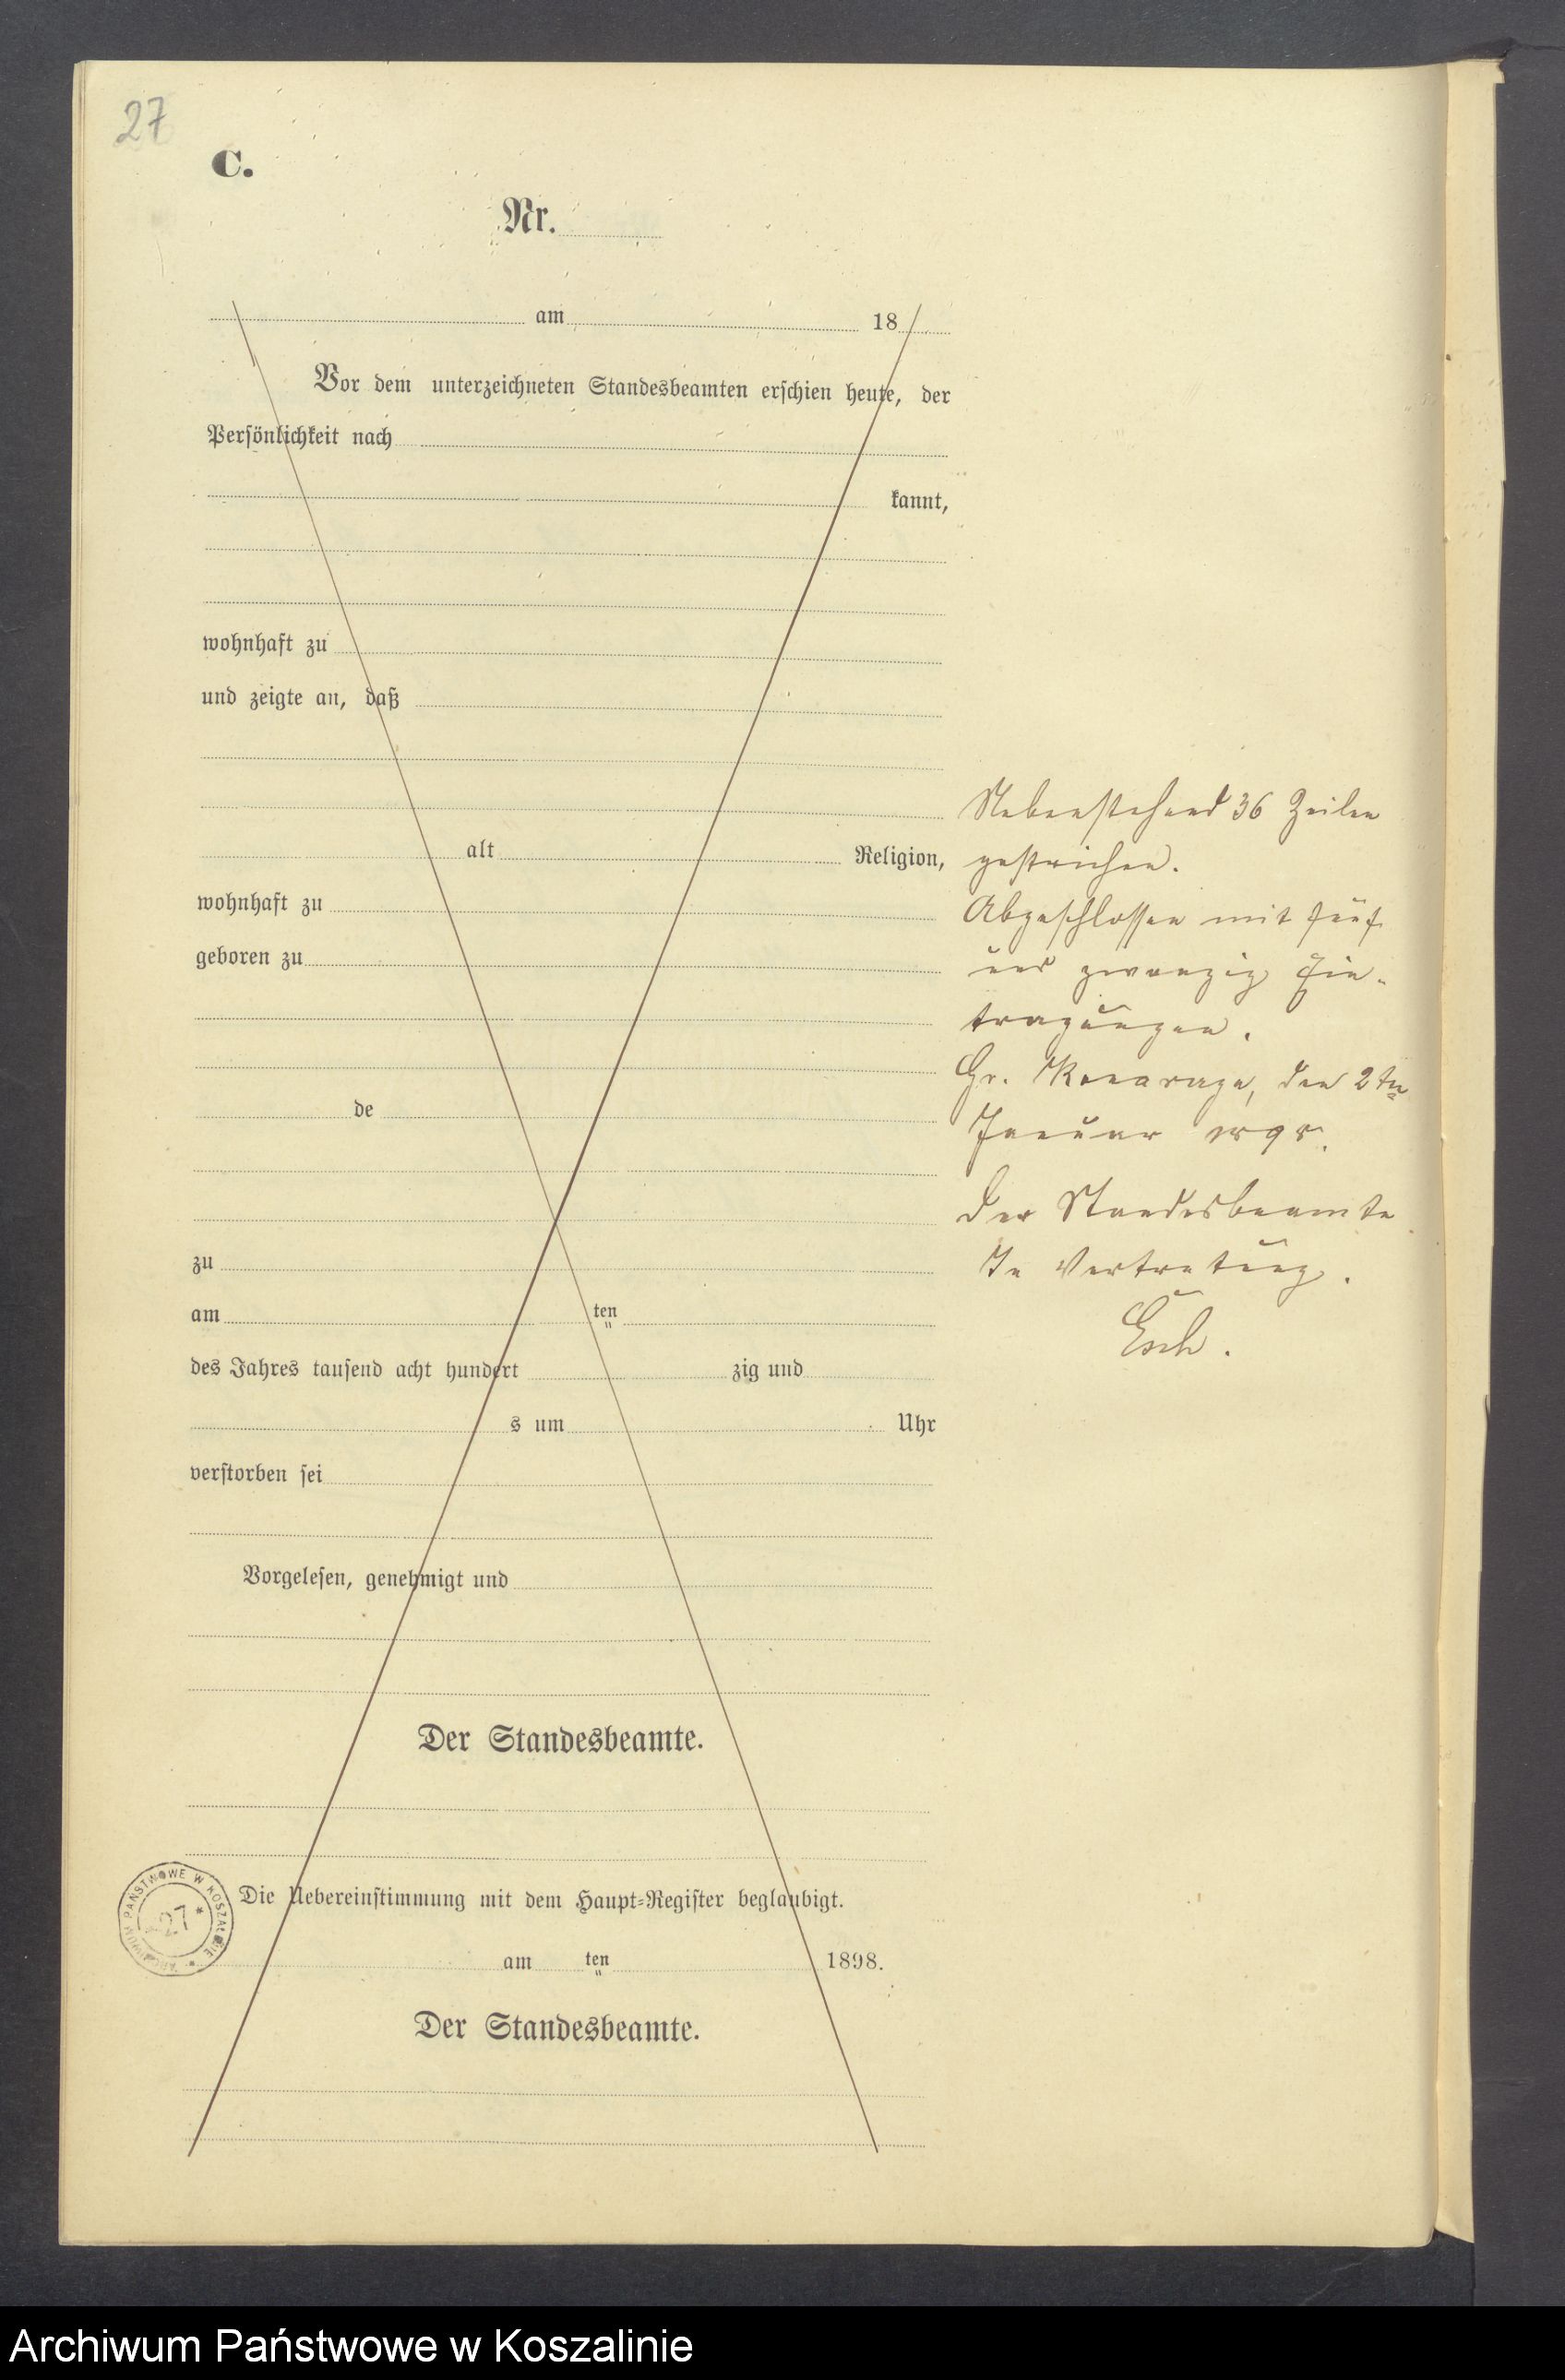 27
C.
Nr.
am 18
Vor dem unterzeichneten Standesbeamten erschien heute, der
Persönlichkeit nach
kannt,
wohnhaft zu
und zeigte an, daß
alt Religion,
wohnhaft zu
geboren zu
de
zu
am ten
des Jahres tausend acht hundert zig und
s um Uhr
verstorben sei
Vorgelesen, genehmigt und
Der Standesbeamte.
Die Uebereinstimmung mit dem Haupt-Register beglaubigt.
am ten 1898.
Der Standesbeamte.
Nebenstehend 36 Zeilen
gestrichen.
Abgeschlossen mit fünf
und zwanzig Ein-
tragungen.
Gr. den 2ten
Januar
Der Standesbeamte
In Vertretung.
Esch.
ARCHIWUM PAŃSTWOWE W KOSZALINIE
27
Archiwum Państwowe w Koszalinie